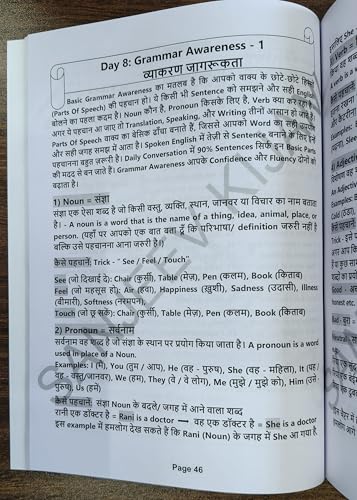 Day 8: Grammar Awareness - 1
व्याकरण जागरूकता
Basic Grammar Awareness का मतलब है कि आपको वाक्य के छोटे-छोटे हिस्सों
(Parts Of Speech) की पहचान हो। ये किसी भी Sentence को समझने और सही English
बोलने का पहला कदम है। Noun कौन है, Pronoun किसके लिए है, Verb क्या कर रहा है
अगर ये पहचान आ जाए तो Translation, Speaking, और Writing तीनों आसान हो जाते हैं।
Parts Of Speech वाक्य का बेसिक ढाँचा बनाते हैं, जिससे आपको Word का सही उपयोग
और सही जगह समझ में आता है। Spoken English में तेज़ी से Sentence बनाने के लिए इन्हें
पहचानना बहुत ज़रूरी है। Daily Conversation में 90% Sentences सिर्फ इन Basic Parts
की मदद से बन जाते हैं। Grammar Awareness आपके Confidence और Fluency दोनों को
बढ़ाता है।
1) Noun = संज्ञा
संज्ञा एक ऐसा शब्द है जो किसी वस्तु, व्यक्ति, स्थान, जानवर या विचार का नाम बताता
है। - A noun is a word that is the name of a thing, idea, animal, place, or
person. (यहाँ पर आपको एक बात बता दूँ कि परिभाषा/ definition जरुरी नहीं है
बल्कि उसे पहचानना आना जरुरी है।)
कैसे पहचानें: Trick - "See / Feel / Touch"
See (जो दिखाई दे): Chair (कुर्सी), Table (मेज़), Pen (कलम), Book (किताब)
Feel (जो महसूस हो): Air (हवा), Happiness (ख़ुशी), Sadness (उदासी), Illness
(बीमारी), Softness (नरमपन)
Touch (जो छू सकें): Chair (कुर्सी), Table (मेज़), Pen (कलम), Book (किताब)
2) Pronoun = सर्वनाम
सर्वनाम वह शब्द है जो संज्ञा के स्थान पर प्रयोग किया जाता है। A pronoun is a word
used in place of a Noun.
Examples: I (मैं), You (तुम / आप), He (वह - पुरुष), She (वह - महिला), It (यह /
वह - वस्तु/जानवर), We (हम), They (वे / वे लोग), Me (मुझे / मुझे को), Him (उसे -
पुरुष), Us (हमें)
कैसे पहचानें: संज्ञा Noun के बदले/ जगह में आने वाला शब्द
रानी एक डॉक्टर है = Rani is a doctor ⟶ वह एक डॉक्टर है = She is a doctor
इस example में हमलोग देख सकते हैं कि Rani (Noun) के जगह में She आ गया है,
Page 46